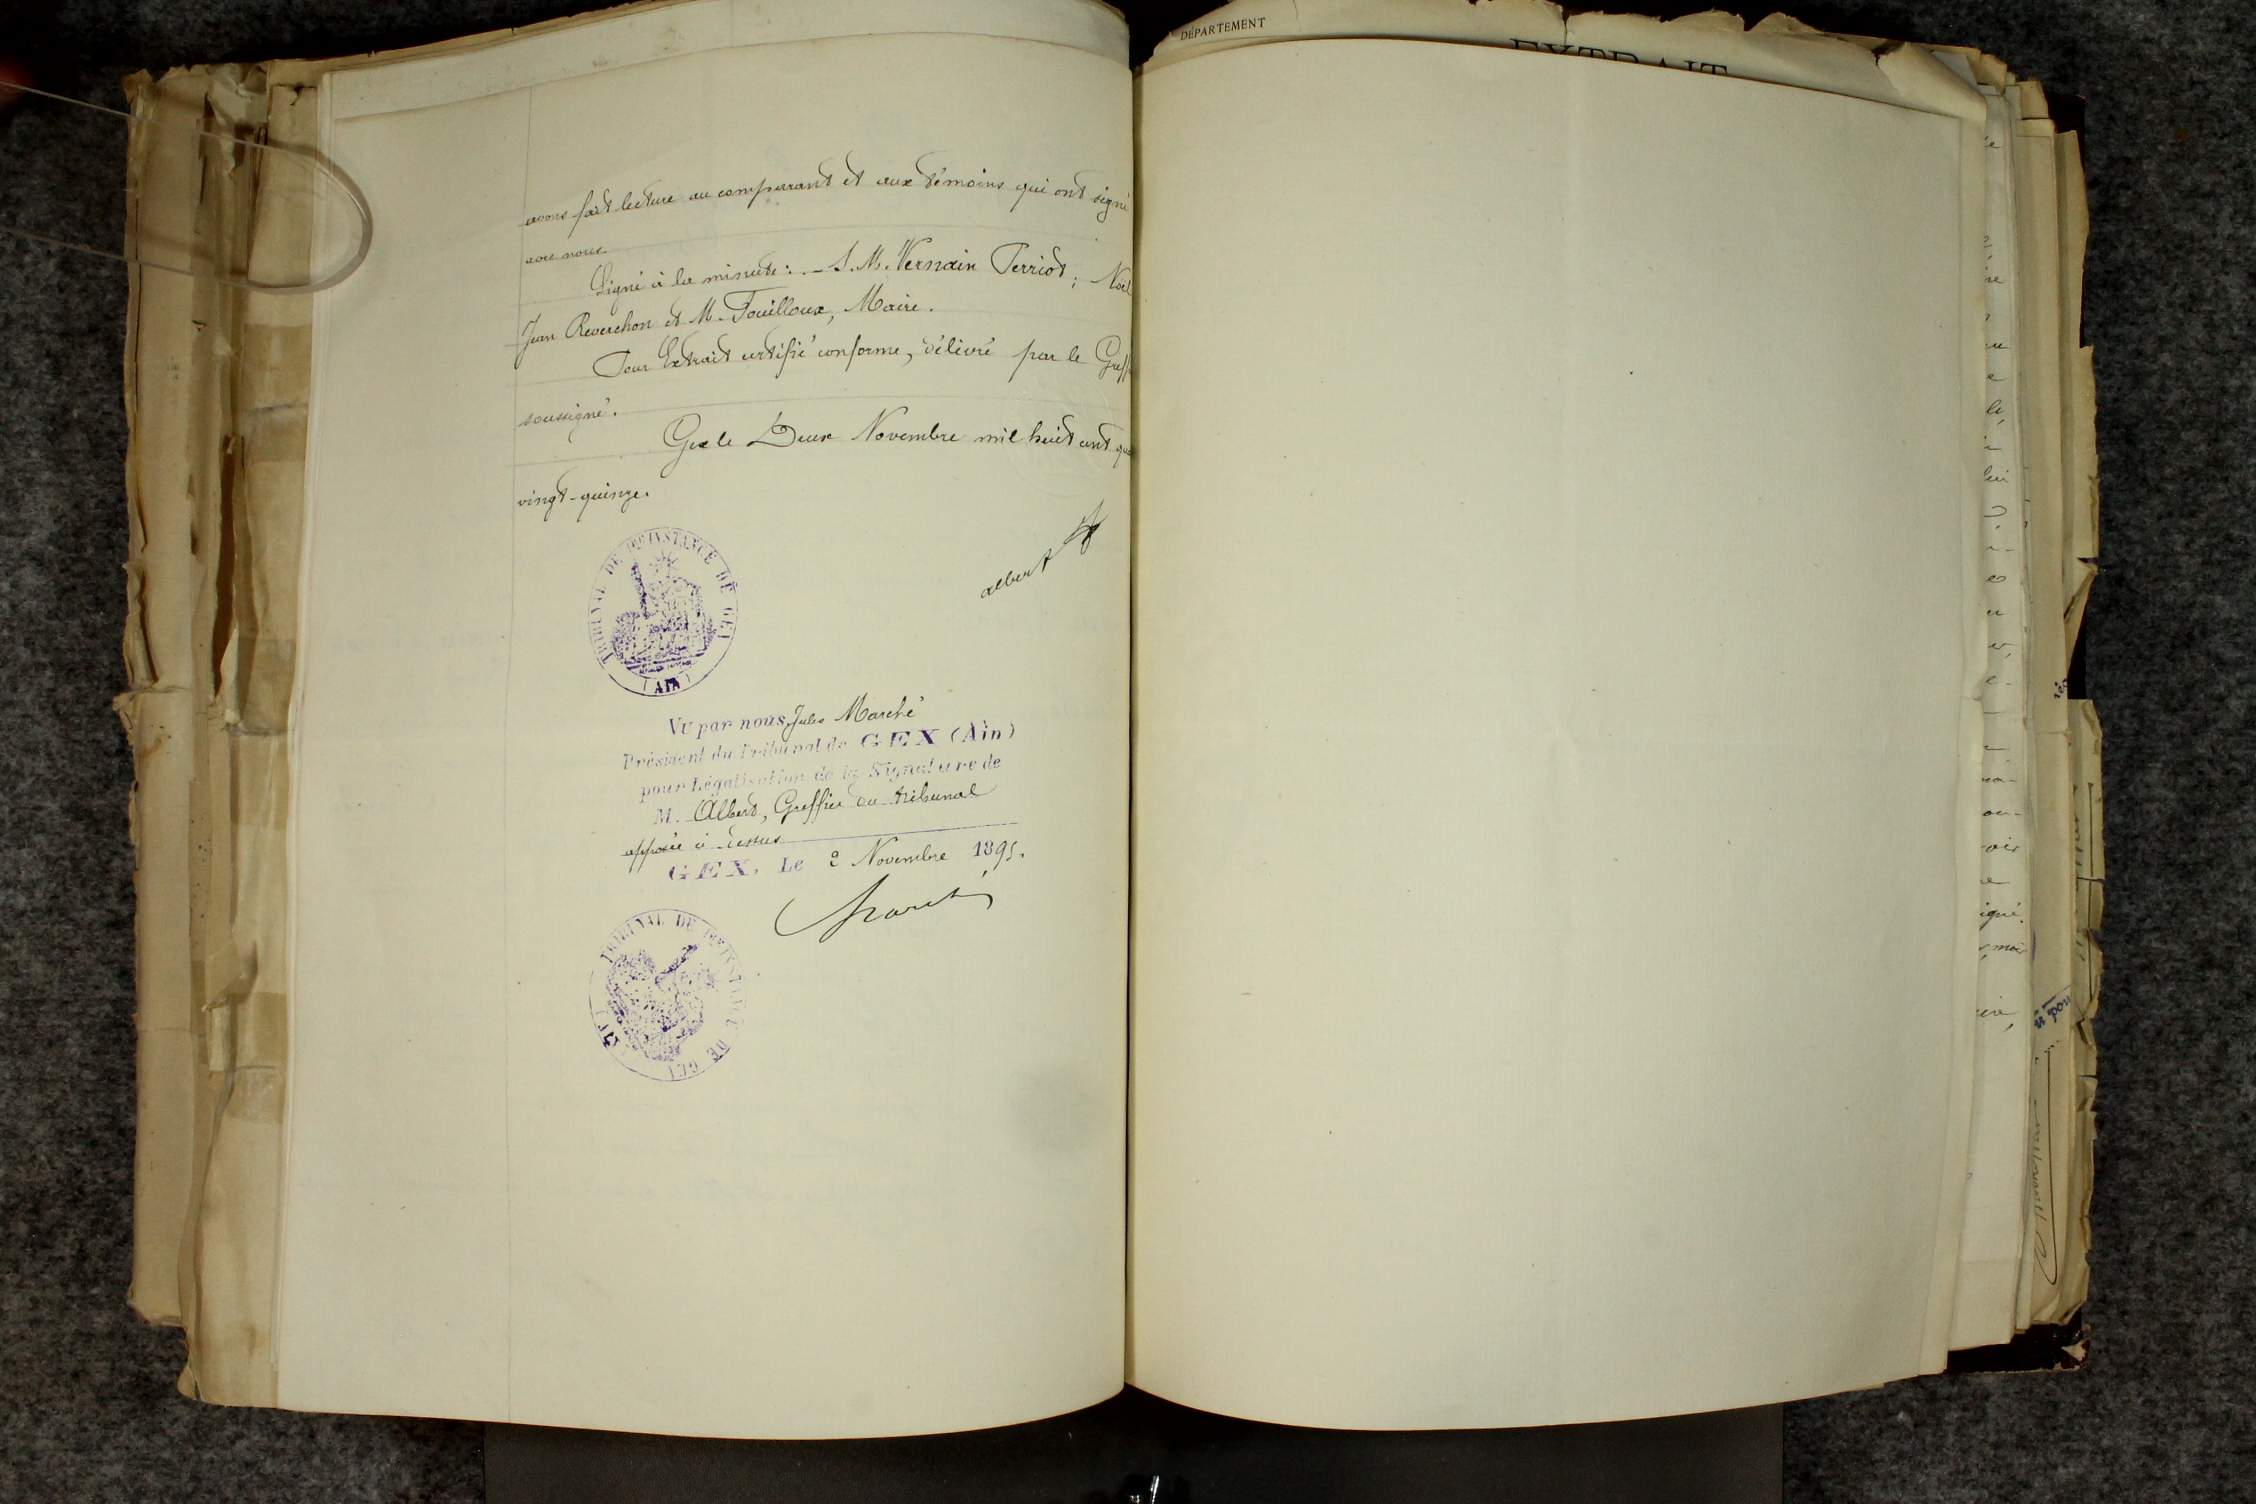 avons fait lecture au comparant et aux témoins qui ont signé
avec nous.
Signé à la minute : _ S. M. Vernain Perriot ; Noël
Jean Reverchon et M. Fouilloux, Maire.
Pour Extrait certifié conforme, délivré par le Greff
soussigné.
Gex le Deux Novembre mil huit cent qua
vingt-quinze.
albert
TRIBUNAL DE 1RE INSTANCE DE GEX
(AIN)
Vu par nous, Jules Marché
Président du Tribunal de GEX (Ain)
pour Légalisation de la Signature de
M. Albert, Greffier du tribunal
apposée ci-dessus
GEX, Le 2 Novembre 1895.
Marché
TRIBUNAL DE 1RE INSTANCE DE GEX
(AIN)
DÉPARTEMENT
EXTRAIT